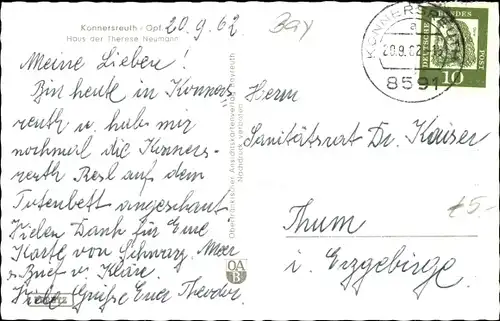 Konnersreuth - Opf.
Haus der Therese Neumann
20.9.62
Bay
Meine Lieben!
Bin heute in Konners-
reuth u. habe mir
nochmal die Konners-
reuth Resl auf dem
Totenbett angeschaut
Vielen Dank für Eure
Karte von Schwarz. Meer
u. Brief v. Kläre.
Viele Grüße Euer Theodor.
Oberfränkischer Ansichtskartenverlag Bayreuth
Nachdruck verboten
OA
B
KONNERSREUTH
a
20.9.62
8591
DEUTSCHE BUNDESPOST
10
Herrn
Sanitätsrat Dr. Kaiser
Thum
i. Erzgebirge
£5.-